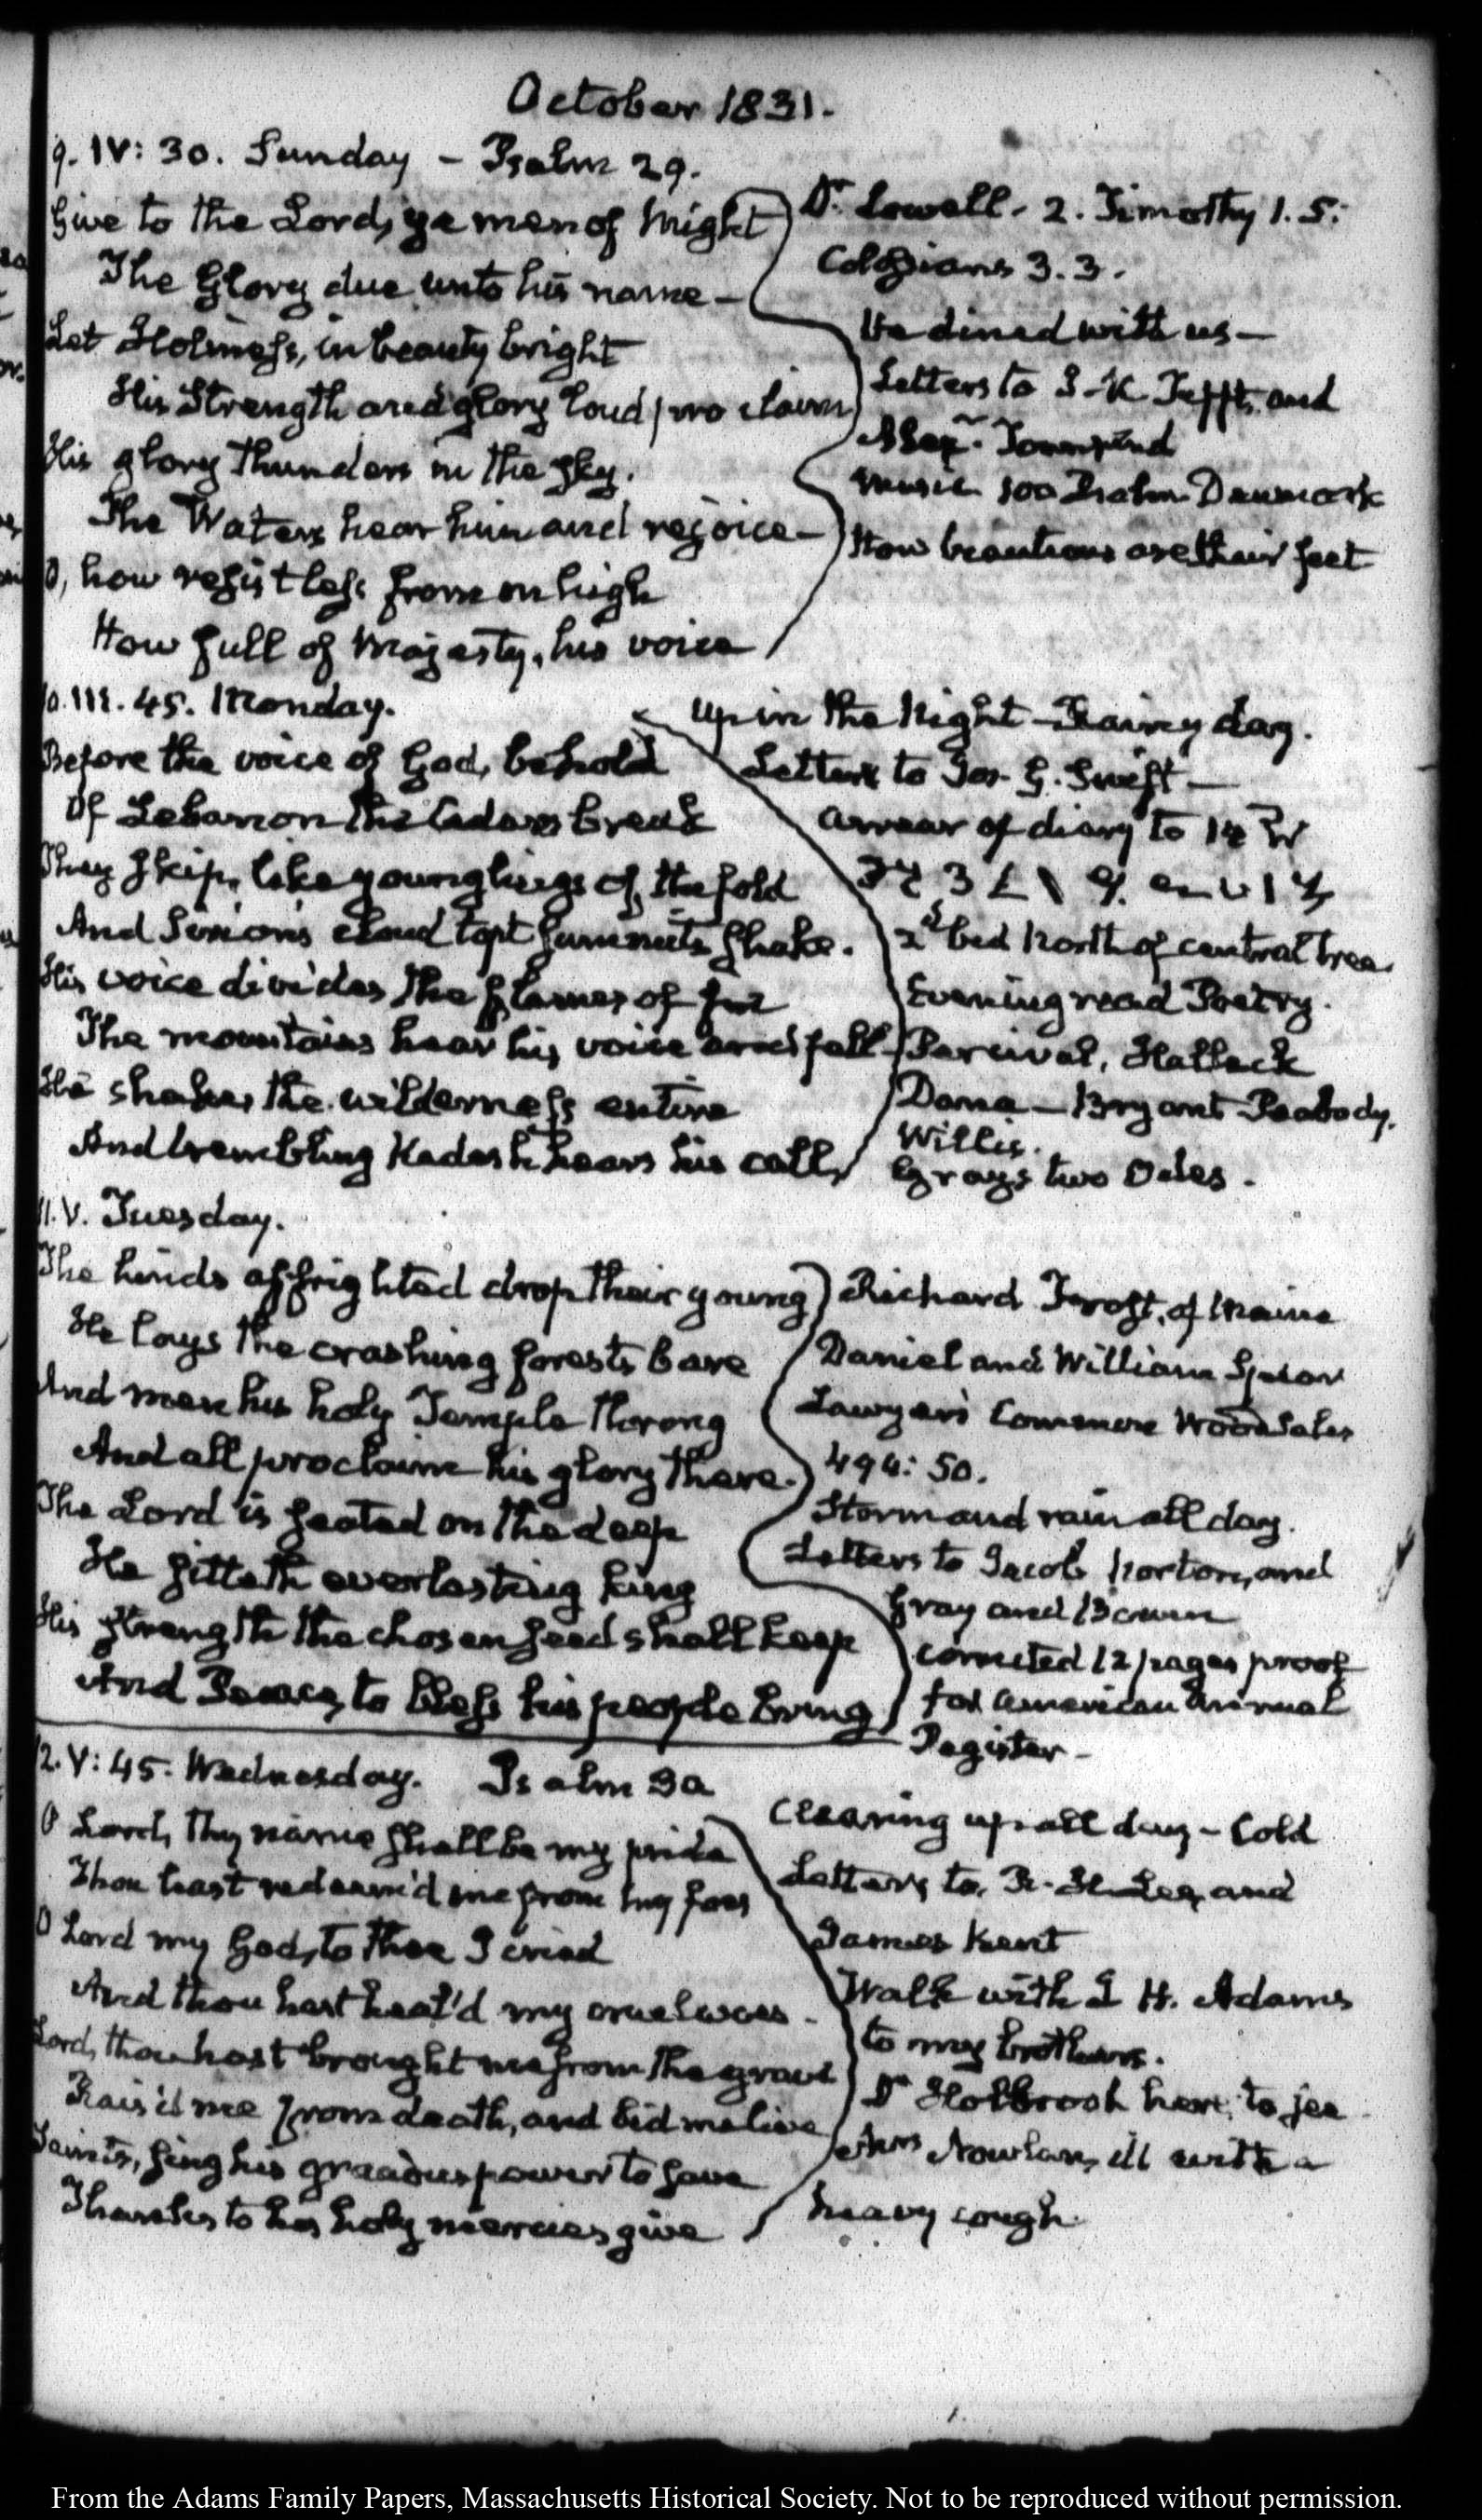 October 1831.
9. IV: 30. Sunday – Psalm 29.
Give to the Lord, ye men of might
The Glory due unto his name –
Let Holiness, in beauty bright
His Strength and glory loud proclaim
His glory thunders in the sky.
The Waters hear him and rejoice –
O, how resistless from on high
How full of Majesty, his voice
Dr. Lowell. 2. Timothy 1. 5:
Colossians 3. 3.
He dined with us –
Letters to I. K. Tefft, and
Alexr. Townsend
Music 100 Psalm Denmark
How beauteous are their feet
10. III. 45. Monday.
Before the voice of God, behold
Of Lebanon the Cedars break
They skip, like younglings of the fold
And Sirion's cloud topt summits shake.
His voice divides the flames of fire
The mountains hear his voice and fall
He shakes the wilderness entire
And trembling Kadesh hears his call
Up in the Night – Rainy day.
Letters to Jos. G. Swift –
Arrear of diary to
2d. bed North of central tree
Evening read Poetry.
Percival, Halleck
Dana – Bryant Peabody.
Willis.
Gray's two Odes.
11. V. Tuesday.
The hinds affrighted drop their young
He lays the crashing forests bare
And men his holy Temple throng
And all proclaim his glory there.
The Lord is seated on the deep
He sitteth everlasting king
His strength the chosen seed shall keep
And Peace, to bless his people bring
Richard Frost, of Maine
Daniel and William Spear
Lawyers Commence Wood Sales
494: 50.
Storm and rain all day.
Letters to Jacob Norton, and
Gray and Bowen
corrected 12 pages proof
for American Annual
Register –
12. V: 45. Wednesday. Psalm 30
O Lord, thy name shall be my pride
Thou hast redeem'd me from my foes
O Lord my God, to thee I cried
And thou hast heal'd my cruel woes.
Lord, thou hast brought me from the grave
Rais'd me from death, and bid me live
Saints, sing his gracious power to save
Thanks to his holy mercies give
Clearing up all day – Cold
Letters to R. H. Lee, and
James Kent
Walk with I H. Adams
to my brothers.
Dr Holbrook here, to see
Mrs Nowlan, ill with a
heavy cough.
From the Adams Family Papers, Massachusetts Historical Society. Not to be reproduced without permission.